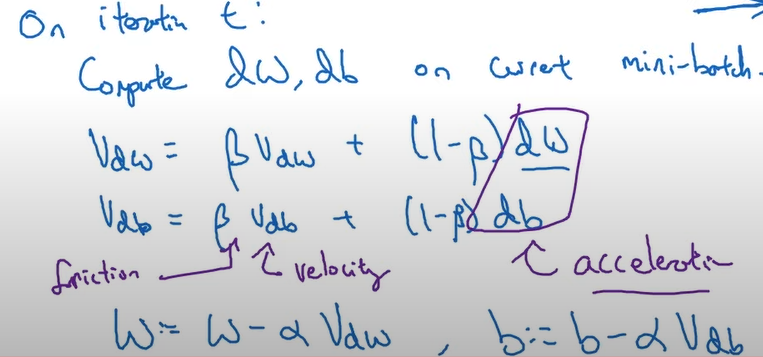 On iteration t:
Compute dW, db on current mini-batch.
Vdw = β Vdw + (1-β) dW
Vdb = β Vdb + (1-β) db
friction velocity acceleration
W := W - α Vdw , b := b - α Vdb